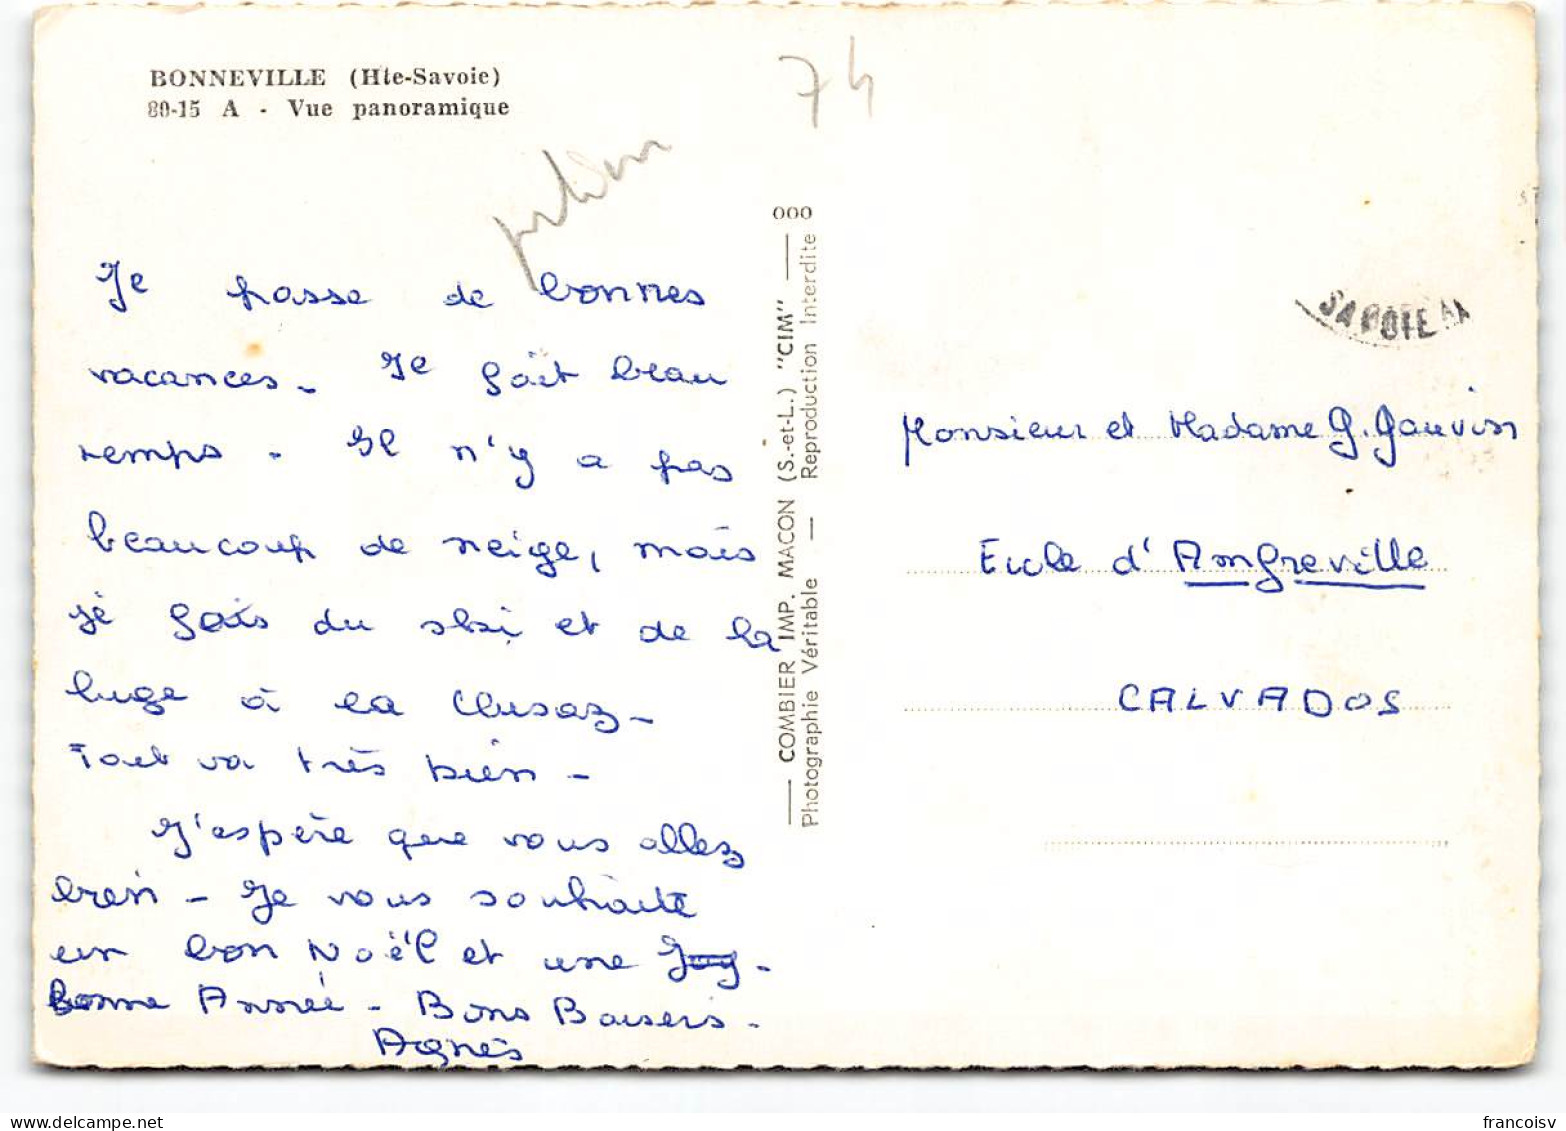 BONNEVILLE (Hte-Savoie)
80-15 A - Vue panoramique
74
Je passe de bonnes
vacances - Il fait beau
temps - Il n'y a pas
beaucoup de neige, mais
je fais du ski et de la
luge à la Clusaz -
Tout va très bien -
J'espère que vous allez
bien - Je vous souhaite
un bon Noël et une
bonne Année - Bons Baisers -
Agnès
000
COMBIER IMP. MACON (S.-et-L.) "CIM"
Photographie Véritable — Reproduction Interdite
SAVOIE
Monsieur et Madame G. Gauvin
École d'Amfreville
CALVADOS
delcampe.net
francoisv